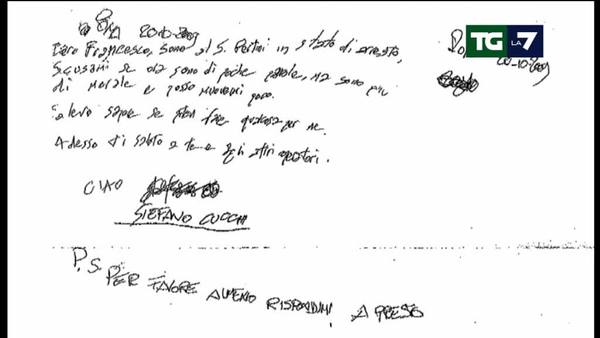 TG LA 7
20-10-2009
Caro Francesco, sono al S. Pertini in stato di arresto,
Scusami se ora sono di poche parole, ma sono giù
di morale e posso muovermi poco.
Volevo sapere se puoi fare qualcosa per me.
Adesso ti saluto a te e agli altri operatori.
CIAO
STEFANO CUCCHI
P.S. PER FAVORE ALMENO RISPONDIMI A PRESTO